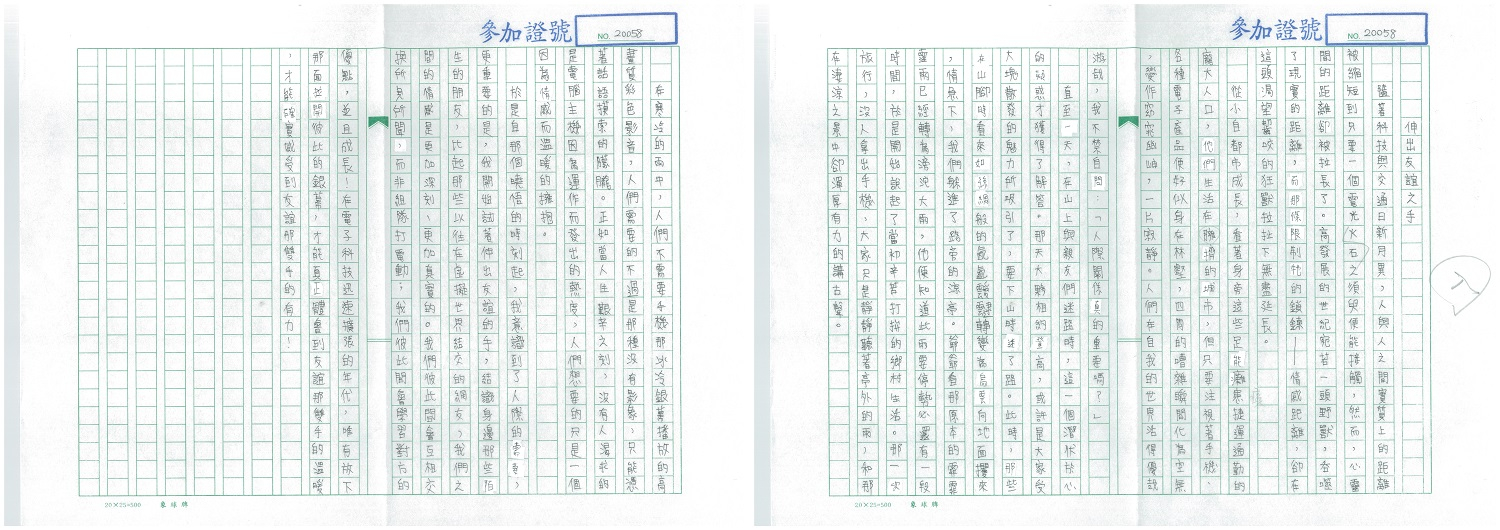 參加證號
NO. 20058
伸出友誼之手
隨著科技與交通日新月異,人與人之間實質上的距離
被縮短到只要一個電光火石之須臾便能接觸,然而,心靈
間的距離卻被拉長了。高發展的世紀宛若一頭野獸,吞噬
了現實的距離,而那條限制牠的鎖鍊——情感距離,卻在
這頭渴望的狂獸拉扯下無盡延長。
從小自都市成長,看著身旁這些足能癱瘓捷運通勤的
龐大人口,他們生活在擁擠的城市,但只要注視著手機、
各種電子產品便好似身在林壑,四周的嘈雜瞬間化為空無
,變作窈窕幽岫,一片寂靜。人們在自我的世界活得優哉
游哉,我不禁自問:「人際關係真的重要嗎?」
直至一天,在山上與親友們迷路時,這一個潛伏於心
的疑惑才獲得了解答。那天大夥相約登高,或許是大家受
大塊散發的魅力所吸引了,要下山時迷了路。此時,那些
在山腳時看來如絲綢般的氤氳轉變為烏雲向地面攫來
,情急下,我們躲進了路旁的涼亭。爺爺看那原本的霏霏
霪雨已經轉為滂沱大雨,他便知道此雨要停勢必還有一段
時間,於是開始說起了當初辛苦打拚的鄉村生活。那一次
旅行,沒人拿出手機,大家只是靜靜聽著亭外的雨,和那
在淒涼之景中卻渾厚有力的講古聲。
20×25=500 象球牌
入
參加證號
NO. 20058
在寒冷的雨中,人們不需要手機那冰冷銀幕播放的高
畫質彩色影音,人們需要的不過是那種沒有影象,只能憑
著話語摸索的朦朧。正如當人生艱苦之刻,沒有人渴求的
是電腦主機因為運作而發出的熱度,人們想要的只是一個
因為情感而溫暖的擁抱。
於是自那個曉悟的時刻起,我意識到了人際的重要,
更重要的是,我開始試著伸出友誼的手,結識身邊那些陌
生的朋友,比起那些以往在虛擬世界結交的網友,我們之
間的情感是更加深刻、更加真實的。我們彼此間會互相交
換所見所聞,而非組隊打電動;我們彼此間會學習對方的
優點,並且成長!在電子科技迅速擴張的年代,唯有放下
那面並間彼此的銀幕,才能真正體會到友誼那雙手的溫暖
,才能確實感受到友誼那雙手的有力!
20×25=500 象球牌